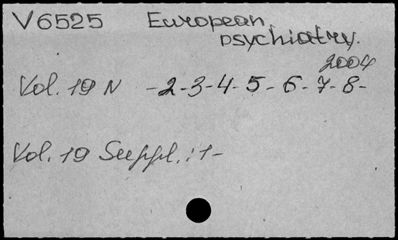 V6525 European
psychiatry.
2004
Vol. 19 N -2-3-4-5-6-7-8-
Vol. 19 Suppl.:1-